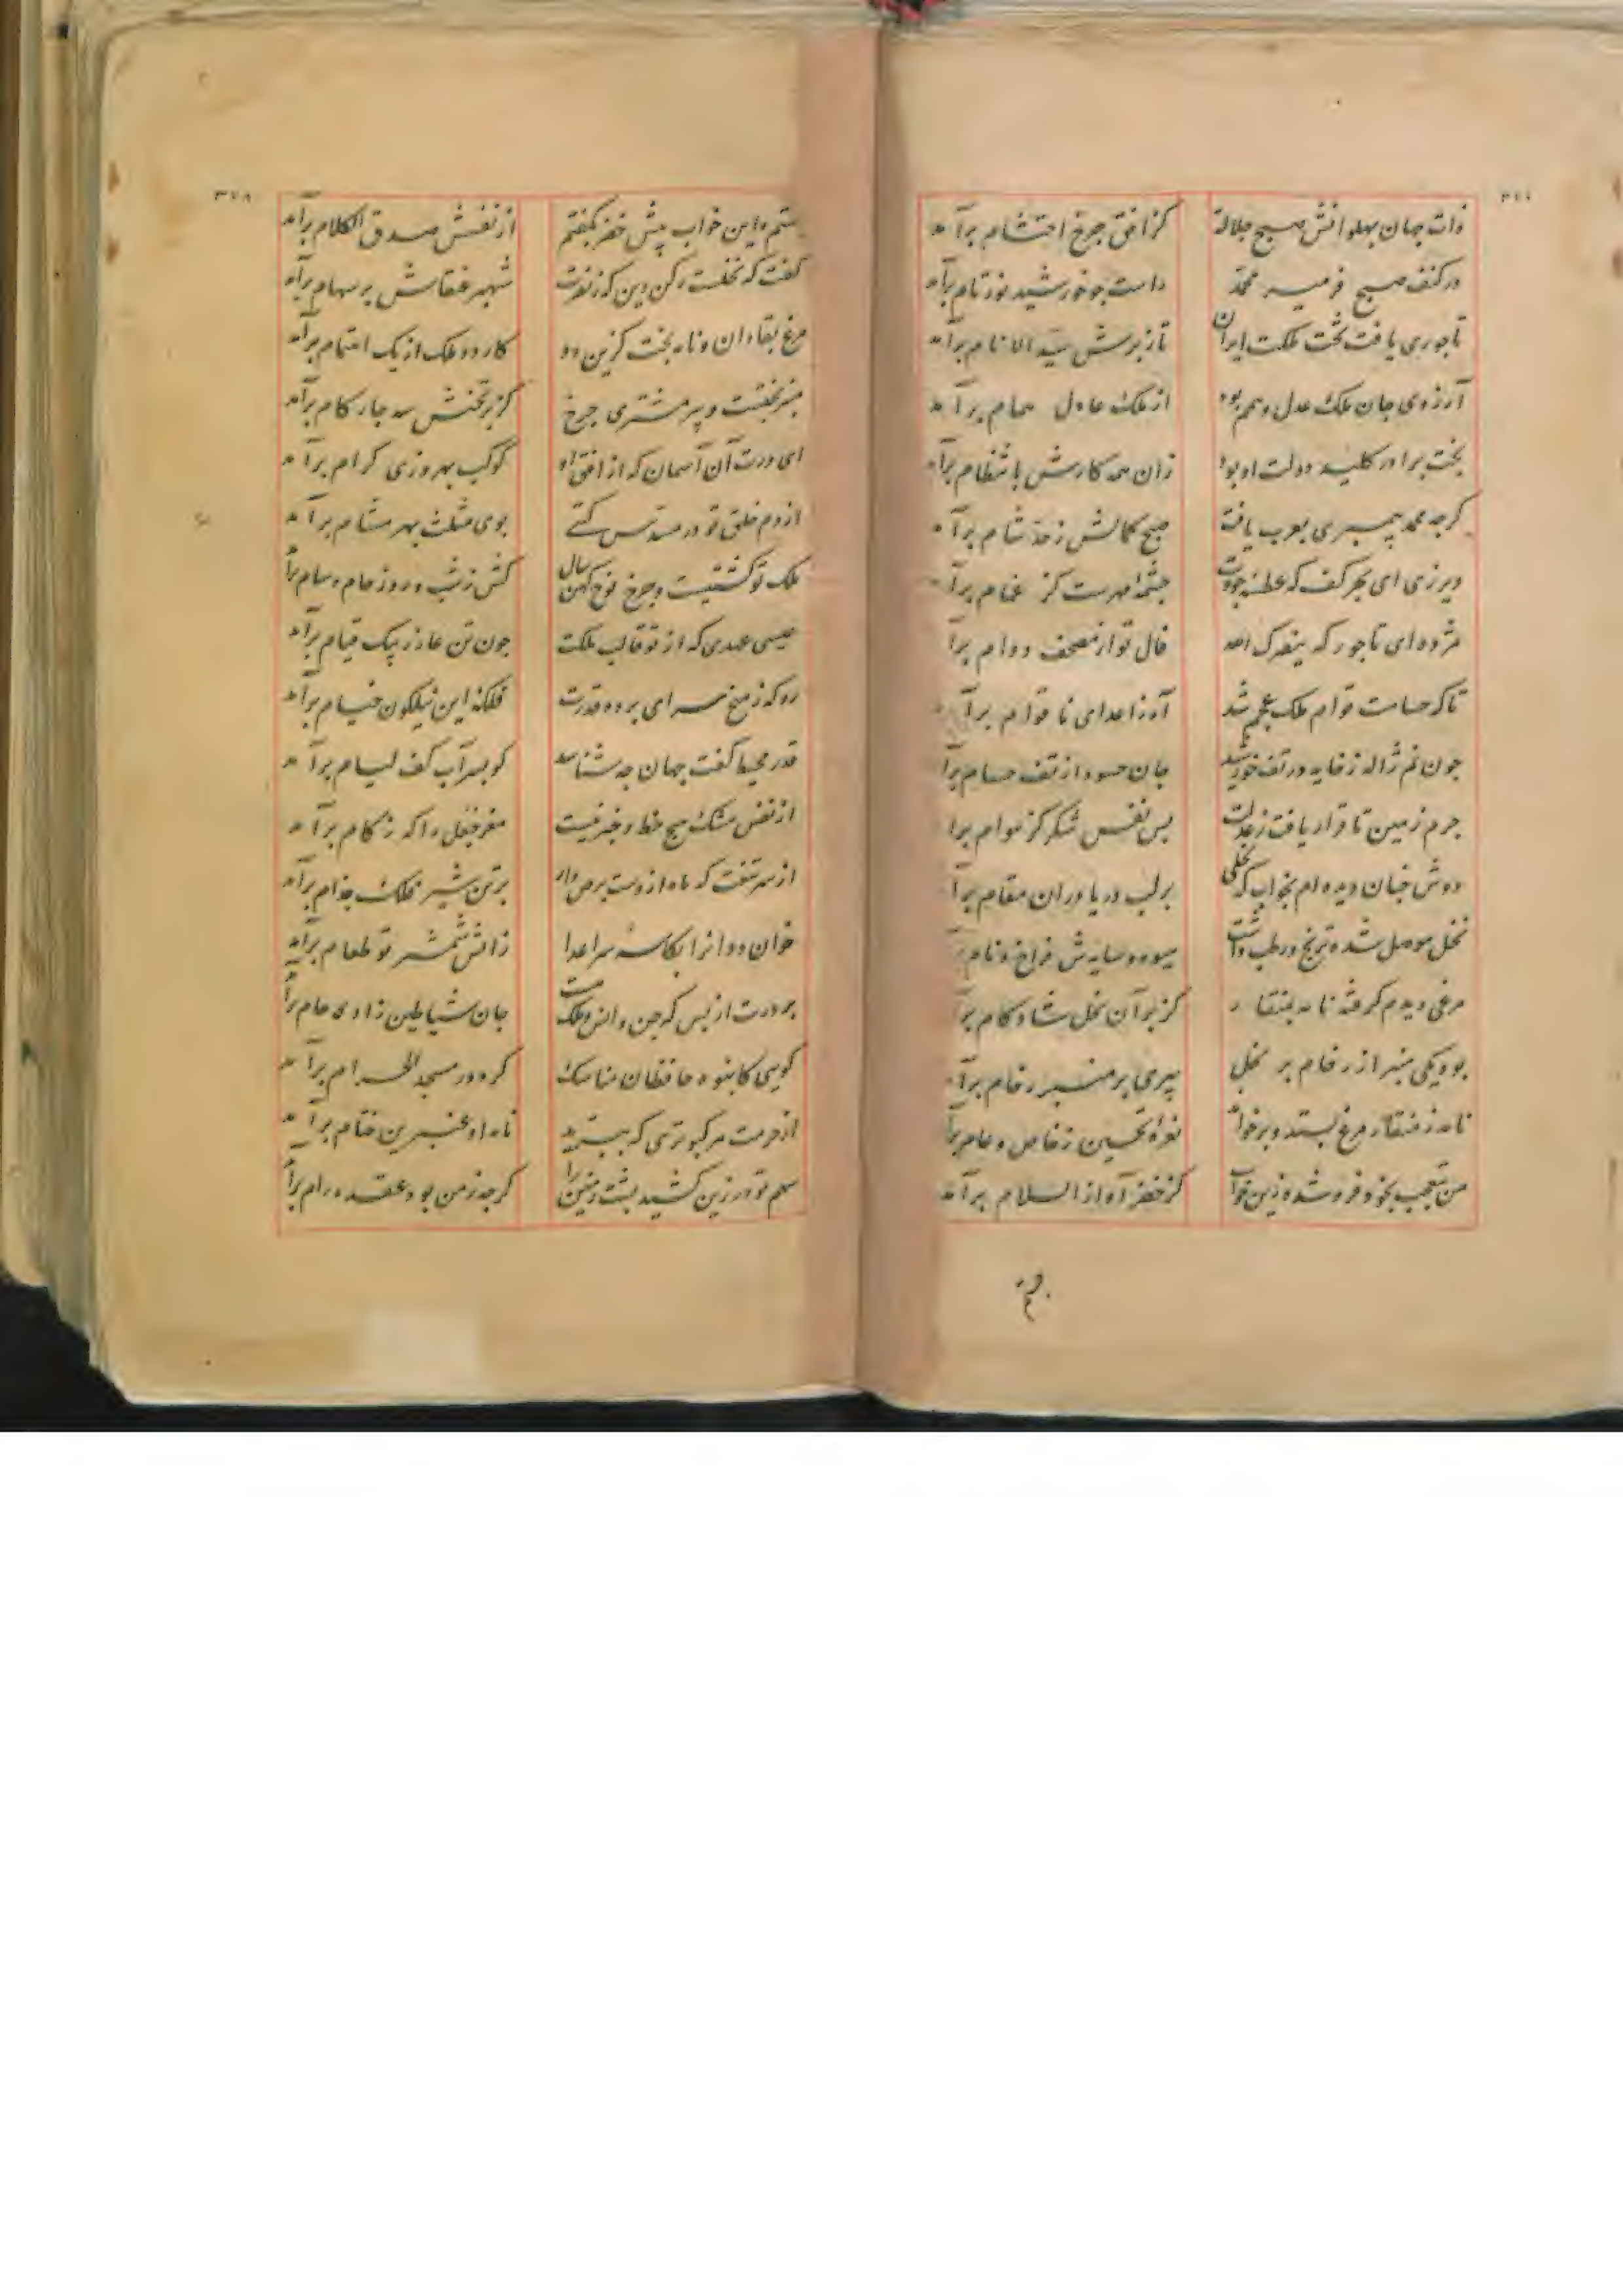 ذات جهان پهلوانش صبح جلالة
کز افق چرخ احتشام برآمد
در کنف صبح فر میر محمد
راست چو خورشید نور تام برآمد
تاجوری یافت تخت مملکت ایران
تاز برش سید الانام برآمد
آرزوی جان ملک عدل و همم بود
از ملک عادل همام برآمد
بخت برادر کلید دولت او بود
زان همه کارش بانتظام برآمد
کرچه محمد پیمبری بعرب یافت
صبح کمالش ز حد شام برآمد
دیر زی ای بحر کف که عطسه جودت
چشمه مهرست کز غمام برآمد
مژده ای تاجور که ینصرک الله
فال تو از مصحف دوام برآمد
تا که حسامت قوام ملک عجم شد
آه ز اعدای نا قوام برآمد
چون نم ژاله ز خایه در تف خورشید
جان حسود از تف حسام برآمد
جرم زمین تا قرار یافت ز عدلت
بس نفس شکر کز هوام برآمد
دوش چنان دیده ام بخواب که نخلی
بر لب دریا در ان مقام برآمد
نخل موصل شده ترنج و رطب داشت
میوه و سایه ش فراخ و نام برآمد
مرغی دیدم کرفته نامه بمنقار
کز بر آن نخل شاد کام برآمد
بود یکی منبر از رخام بر نخل
پیری بر منبر رخام برآمد
نامه ز منقار مرغ بستد و برخواند
نعره تحسین ز خاص و عام برآمد
من متعجب بخود فرو شده زین خواب
کز خضر آواز السلام برآمد
جستم و این خواب پیش خضر بکفتم
از نفسش صدق الکلام برآمد
کفت که نخلست رکن دین که ز نصرت
شهپر عنقاش بر سهام برآمد
مرغ بقا دان و نامه بخت کزین دو
کار دو ملک از یک اهتمام برآمد
منبر تختست و پیر مشتری چرخ
کز بر تختش سه چار کام برآمد
ای درت آن آسمان که از افق او
کوکب بهروزی کرام برآمد
از دم خلق تو در مسدس کیتی
بوی مثلث بهر مشام برآمد
ملک تو کشتیست و چرخ نوح کهن سال
کش ز شب و روز حام و سام برآمد
عیسی عهدی که از تو قالب ملکت
چون تن عازر بیک قیام برآمد
رو که ز میخ سرای پرده قدرت
فلکه این نیلکون خیام برآمد
قدر محیط کفت جهان چه شناسد
کو بسر آب کف لیام برآمد
از نفس مشک هیچ حظ و خبر نیست
مغز جعل را که زکام برآمد
از سر تیغت که ماه ازوست برص دار
بر تن شیر فلک جذام برآمد
خوان دوا نرا بکاسه سر اعدا
ز آتش شمشیر تو طعام برآمد
بر درت از بس که جن و انس و ملک هست
جان شیاطین ز ازدحام برآمد
کویی کانبوه حافظان مناسک
کرد در مسجد الحرام برآمد
از حرمت هر کبوتری که بپرید
نامه او عنبرین ختام برآمد
سهم تو در زین کشید پشت زمین را
کرچه زمن بود عقده ورام برآمد